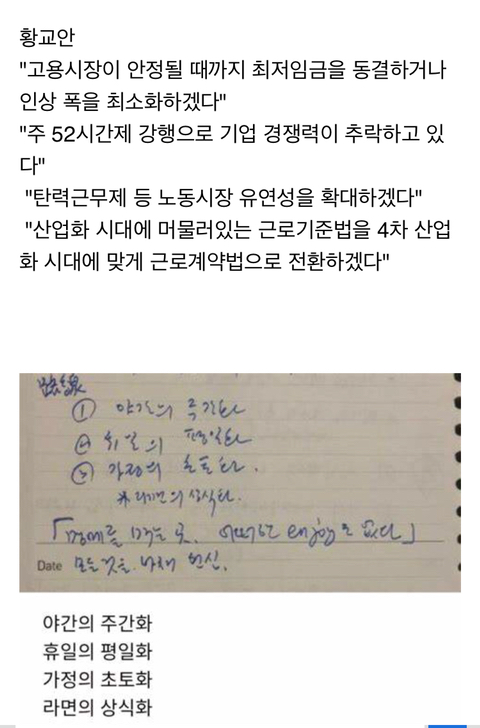 황교안
"고용시장이 안정될 때까지 최저임금을 동결하거나
인상 폭을 최소화하겠다"
"주 52시간제 강행으로 기업 경쟁력이 추락하고 있
다"
"탄력근무제 등 노동시장 유연성을 확대하겠다"
"산업화 시대에 머물러있는 근로기준법을 4차 산업
화 시대에 맞게 근로계약법으로 전환하겠다"
① 야간의 주간화
② 휴일의 평일화
③ 가정의 초토화.
※라면의 상식화.
「명예를 먹는 곳. 어떠한 enjoy도 없다」
Date 모든 것을 바쳐 헌신.
야간의 주간화
휴일의 평일화
가정의 초토화
라면의 상식화